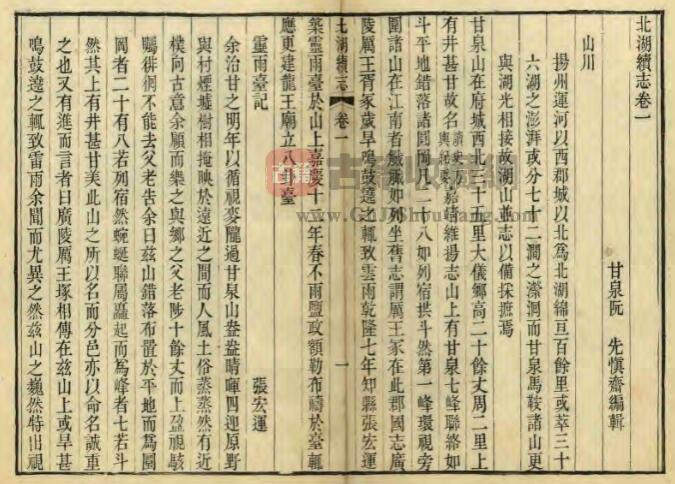 北湖續志卷一
甘泉阮 先慎齋編輯
山川
揚州運河以西郡城以北爲北湖綿亘百餘里或萃三十
六湖之澎湃或分七十二澗之瀠洄而甘泉馬鞍諸山更
與湖光相接故湖山並志以備採摭焉
甘泉山在府城西北三十五里大儀鄉高二十餘丈周二里上
有井甚甘故名嘉靖維揚志山上有甘泉七峰聯絡如
斗平地錯落諸岡阜凡二十八如列宿拱斗然第一峰環視旁
圍諸山在江南者歷歷如列坐舊志謂厲王冢在此郡國志廣
陵厲王胥冢歲旱鳴鼓遶之輒致雲雨乾隆七年知縣張宏運
築靈雨臺於山上嘉慶十 年春不雨鹽政額勒布禱於臺輒
應更建龍王廟立八卦臺
北湖續志 卷一 一
靈雨臺記 張宏運
余治甘之明年以循視麥隴過甘泉山登 晴暉四迎原野
與村煙墟樹相掩映於遠近之間而人風土俗蒸蒸然有近
樸向古意余顧而樂之與鄉之父老陟十餘丈而上盈視駭
矚徘徊不能去父老告余曰茲山錯落布置於平地而爲圜
岡者二十有八若列宿然蜿蜒聯屬矗起而爲峰者七若斗
然其上有井甚甘美此山之所以名而分邑亦以命名誠重
之也又有進而言者曰廣陵厲王塚相傳在茲山上或旱甚
鳴鼓遶之輒致雷雨余聞而尤異之然茲山之巍然特出視
古籍
www.GuJiShuGang.COM